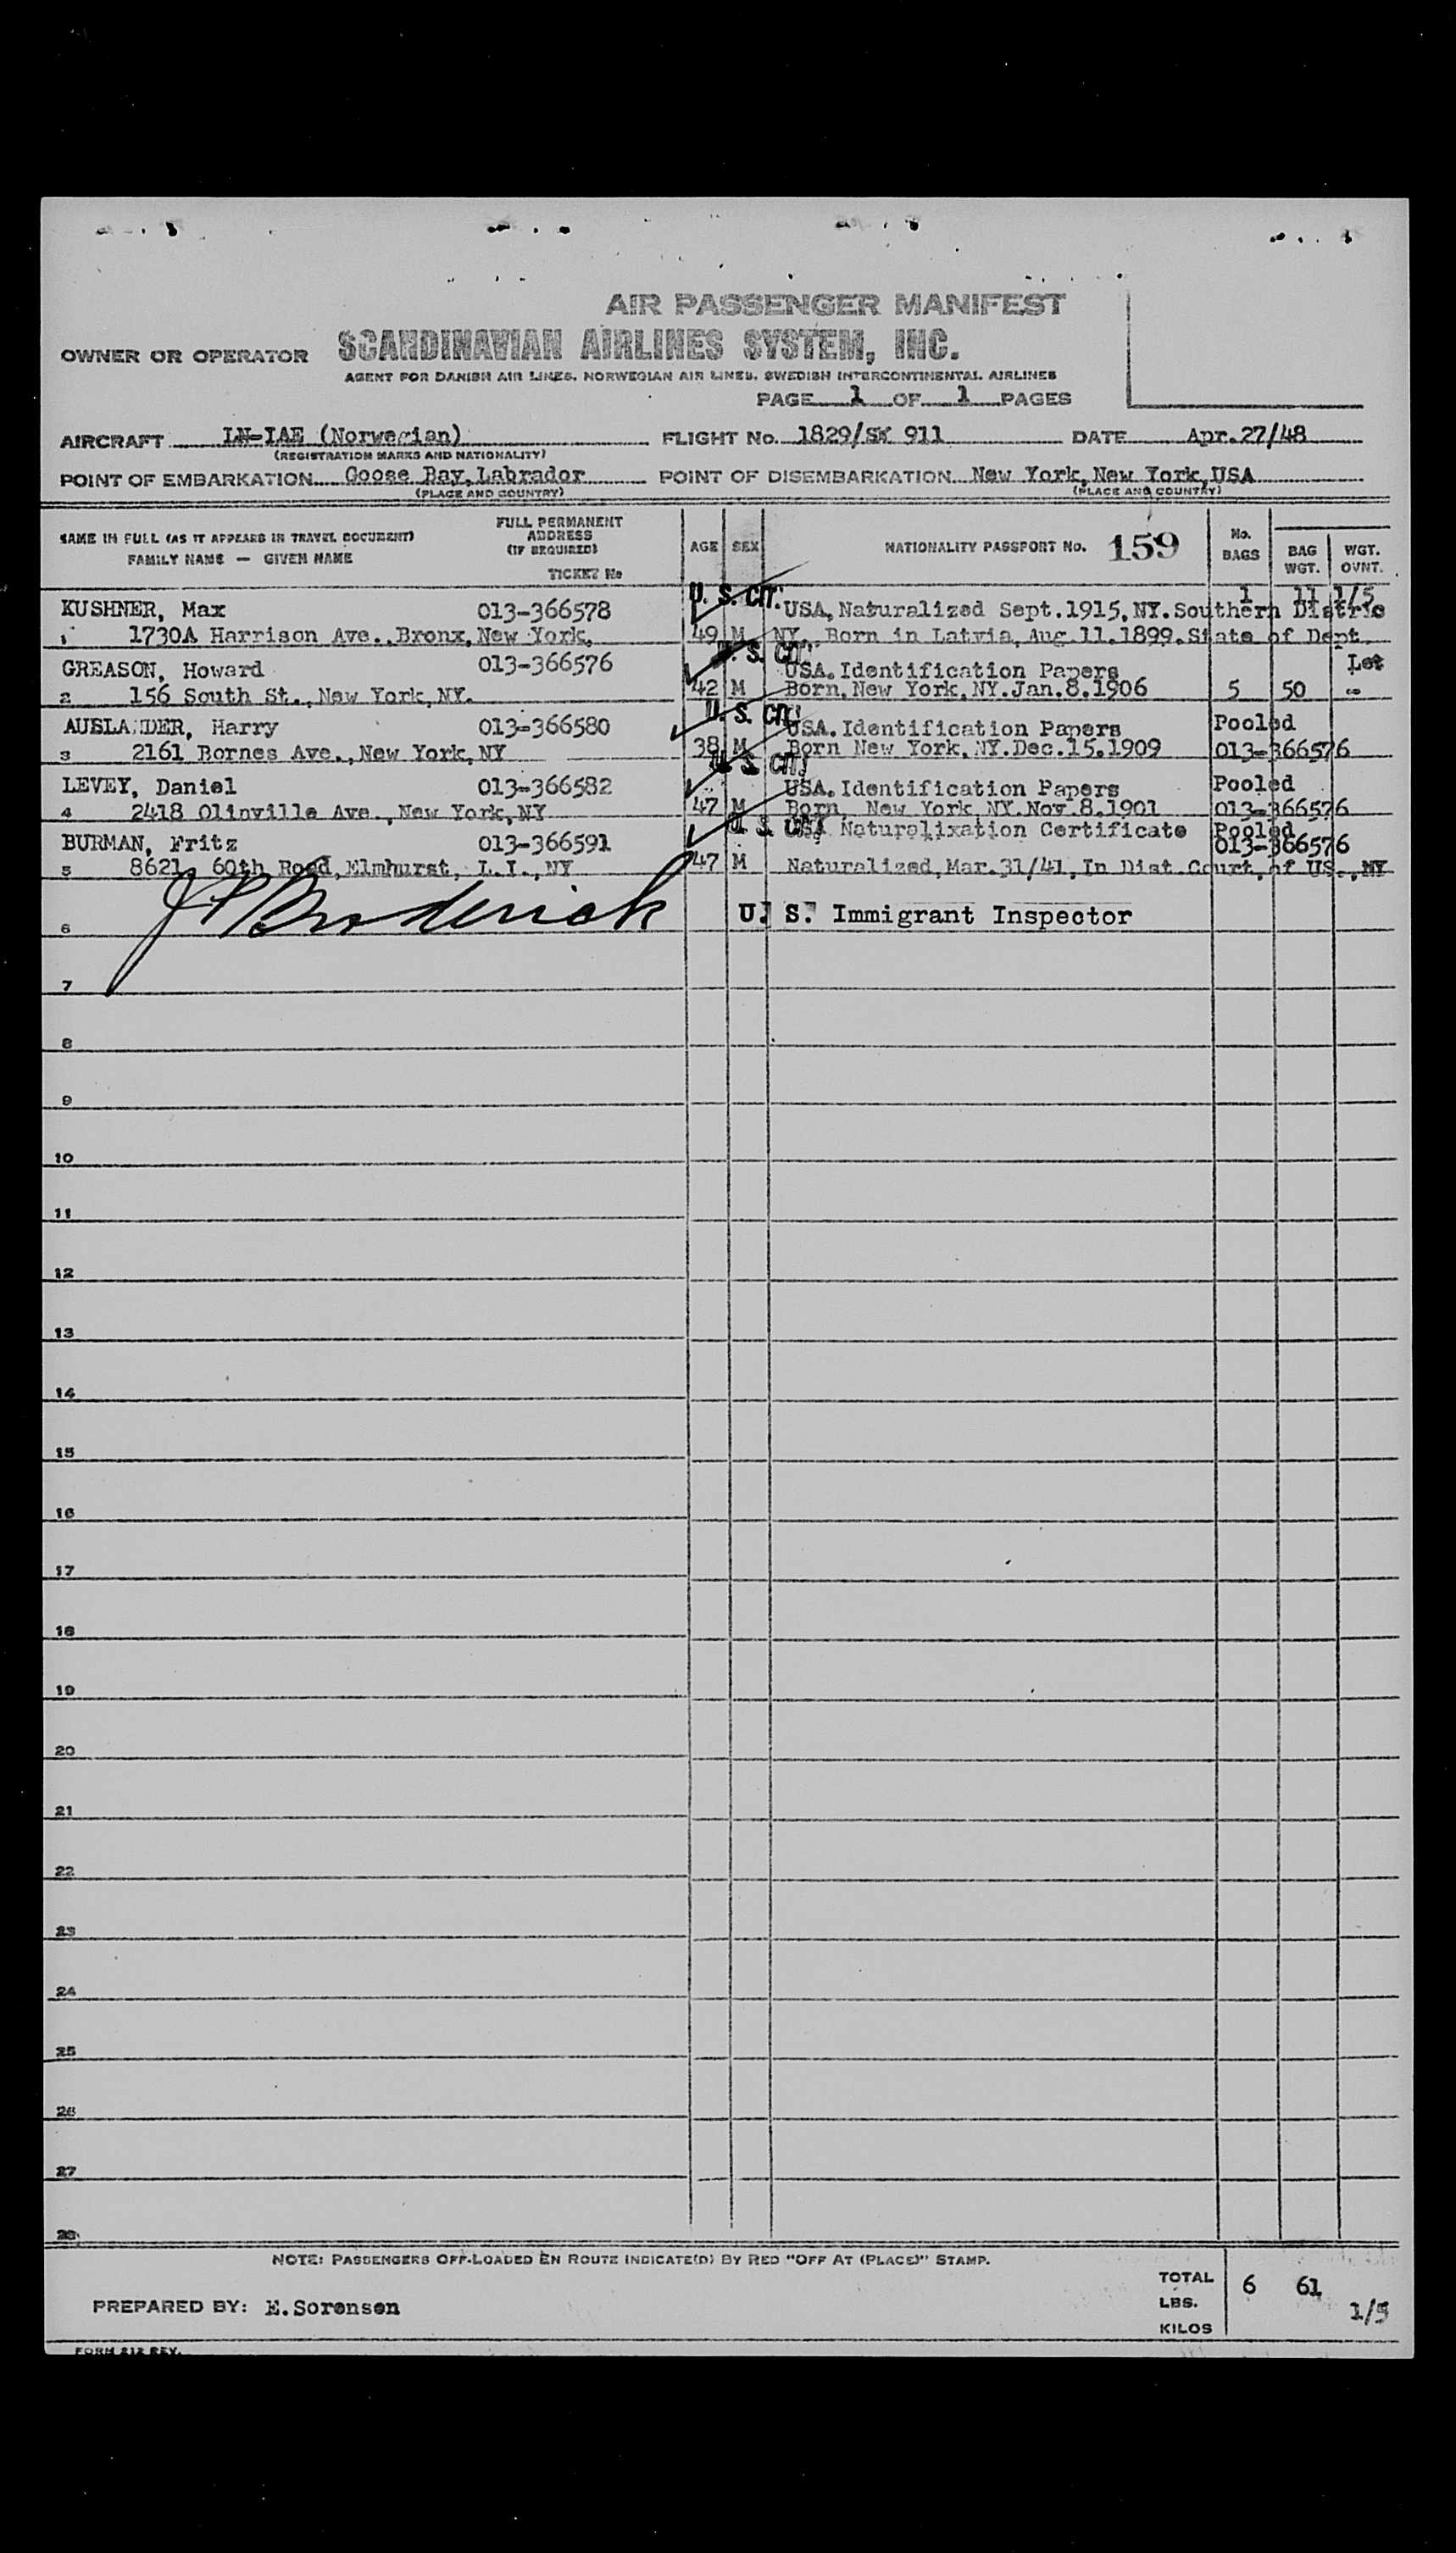 AIR PASSENGER MANIFEST
OWNER OR OPERATOR SCANDINAVIAN AIRLINES SYSTEM, INC.
AGENT FOR DANISH AIR LINES, NORWEGIAN AIR LINES, SWEDISH INTERCONTINENTAL AIRLINES
PAGE 1 OF 1 PAGES
AIRCRAFT LN-IAE (Norwegian) FLIGHT No. 1829/SK 911 DATE Apr.27/48
(REGISTRATION MARKS AND NATIONALITY)
POINT OF EMBARKATION Goose Bay,Labrador POINT OF DISEMBARKATION New York,New York,USA
(PLACE AND COUNTRY) (PLACE AND COUNTRY)
NAME IN FULL (AS IT APPEARS IN TRAVEL DOCUMENT)
FAMILY NAME — GIVEN NAME
FULL PERMANENT
ADDRESS
(IF REQUIRED)
TICKET No
AGE SEX NATIONALITY PASSPORT No. 159
No.
BAGS
BAG
WGT.
WGT.
OVNT.
U. S. CIT. 1 11 1/5
KUSHNER, Max 013-366578 USA, Naturalized Sept.1915,NY.Southern Distric
1 1730A Harrison Ave.,Bronx,New York, 49 M NY. Born in Latvia,Aug.11.1899.State of Dept
U. S. CIT.
GREASON, Howard 013-366576 USA.Identification Papers
2 156 South St.,New York,NY. 42 M Born.New York,NY.Jan.8.1906 5 50
U. S. CIT.
AUSLANDER, Harry 013-366580 USA.Identification Papers Pooled
3 2161 Bornes Ave.,New York,NY 38 M Born New York,NY.Dec.15.1909 013-366576
U. S. CIT.
LEVEY, Daniel 013-366582 USA.Identification Papers Pooled
4 2418 Olinville Ave.,New York,NY 47 M Born New York,NY.Nov.8.1901 013-366576
U. S. CIT.
BURMAN, Fritz 013-366591 USA Naturalixation Certificate Pooled
013-366576
5 8621 60th Road,Elmhurst, L.I.,NY 47 M Naturalized,Mar.31/41,In Dist.Court,of US.,NY
6 J P Broderick U. S. Immigrant Inspector
7
8
9
10
11
12
13
14
15
16
17
18
19
20
21
22
23
24
25
26
27
28
NOTE: PASSENGERS OFF-LOADED EN ROUTE INDICATE(D) BY RED "OFF AT (PLACE)" STAMP.
PREPARED BY: E.Sorensen
TOTAL 6 61
LBS. 1/5
KILOS
FORM 812 REV.